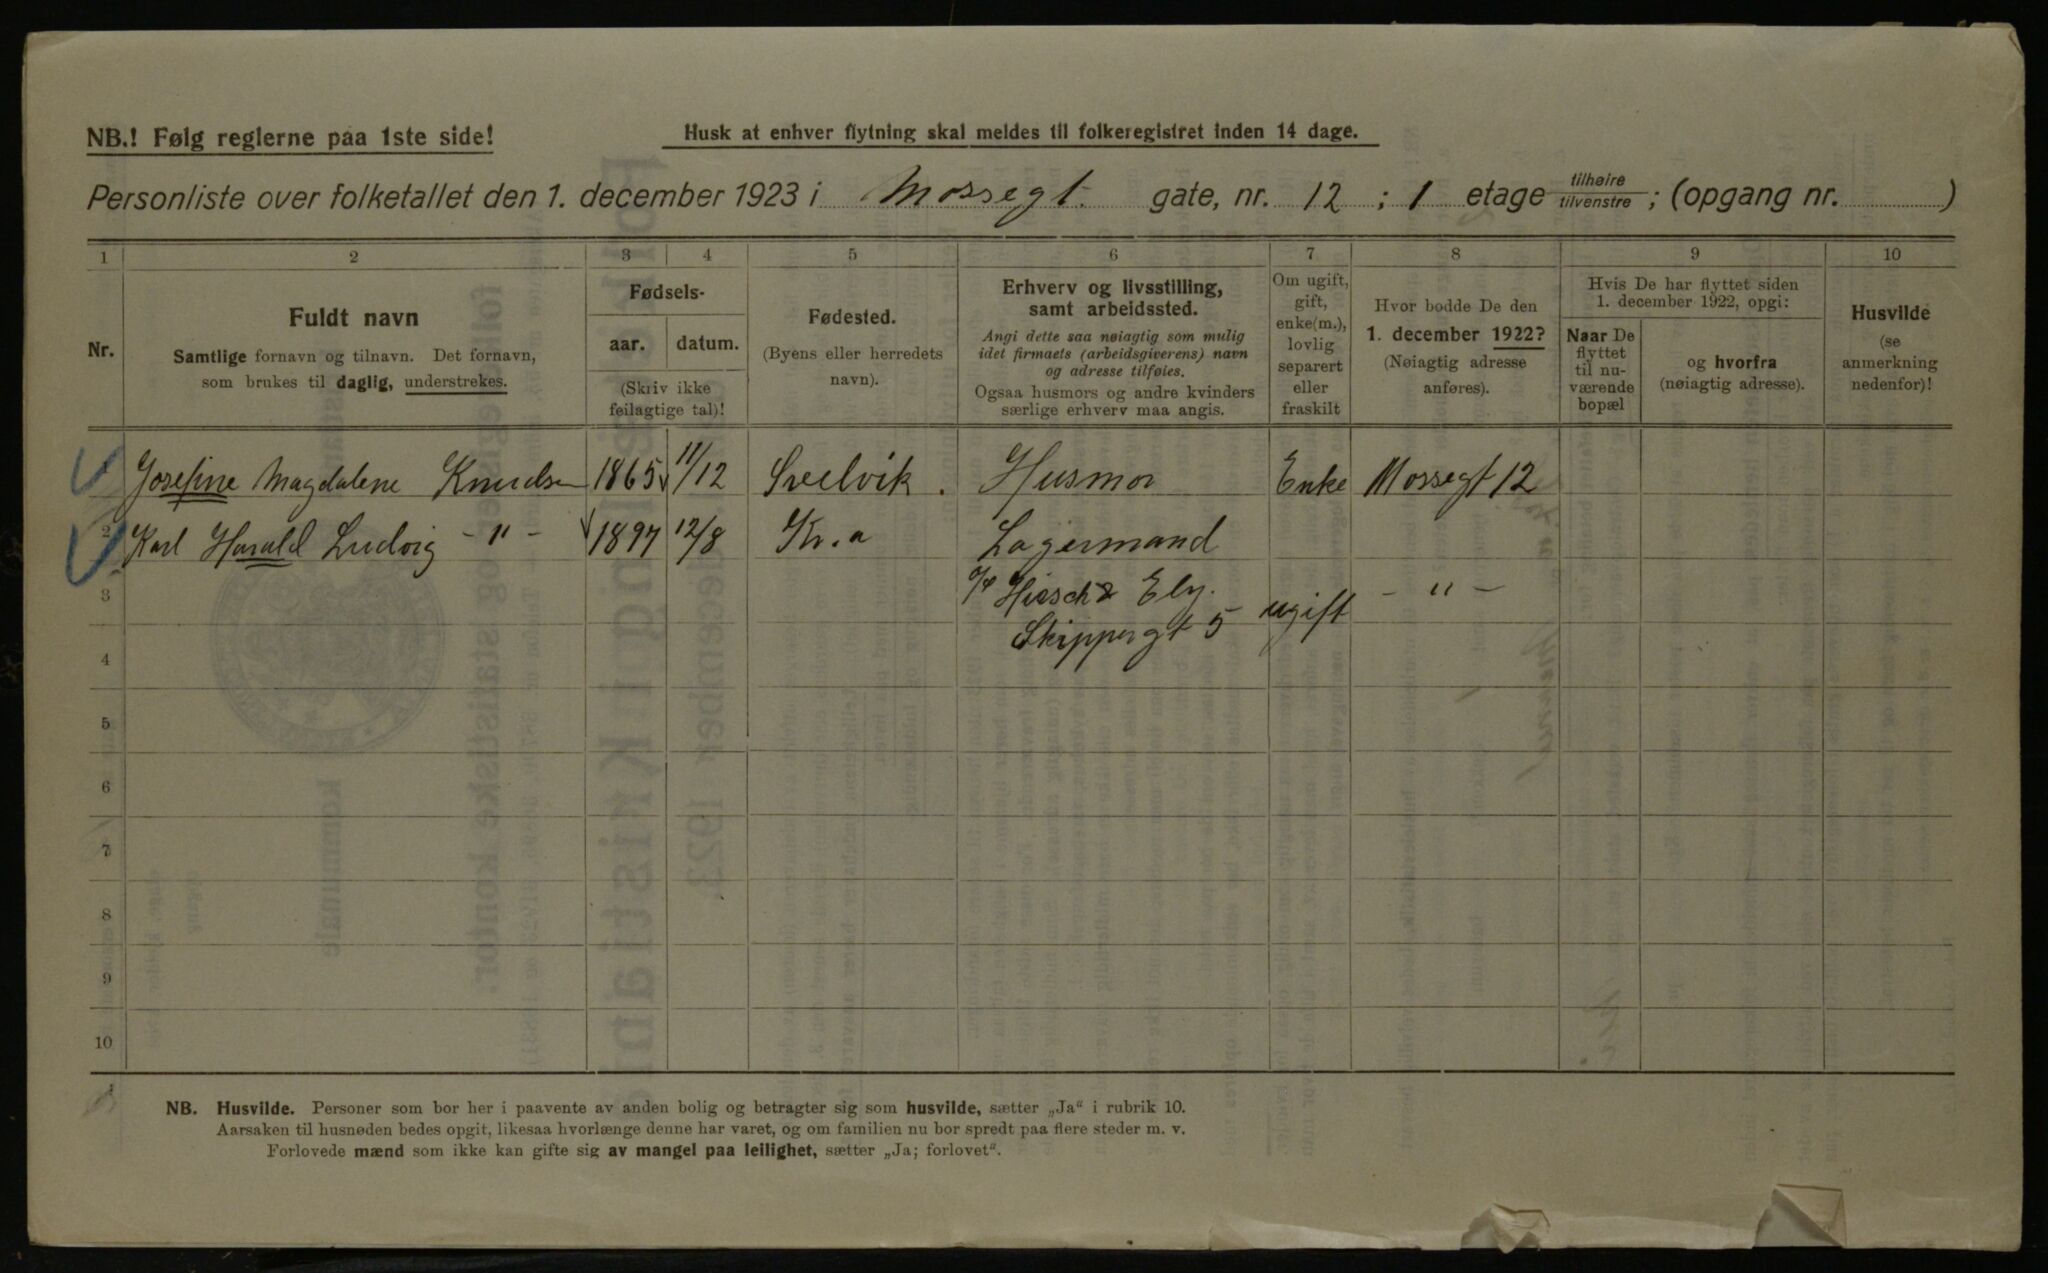 NB.! Følg reglerne paa 1ste side!
Husk at enhver flytning skal meldes til folkeregistret inden 14 dage.
Personliste over folketallet den 1. december 1923 i Mossegt. gate, nr. 12 ; 1 etage tilhøire tilvenstre ; (opgang nr. )
1 2 3 4 5 6 7 8 9 10
Nr.
Fuldt navn
Samtlige fornavn og tilnavn. Det fornavn,
som brukes til daglig, understrekes.
Fødsels-
aar. datum.
(Skriv ikke
feilagtige tal)!
Fødested.
(Byens eller herredets
navn).
Erhverv og livsstilling,
samt arbeidssted.
Angi dette saa nøiagtig som mulig
idet firmaets (arbeidsgiverens) navn
og adresse tilføies.
Ogsaa husmors og andre kvinders
særlige erhverv maa angis.
Om ugift,
gift,
enke(m.),
lovlig
separert
eller
fraskilt
Hvor bodde De den
1. december 1922?
(Nøiagtig adresse
anføres).
Hvis De har flyttet siden
1. december 1922, opgi:
Naar De
flyttet
til nu-
værende
bopæl
og hvorfra
(nøiagtig adresse).
Husvilde
(se
anmerkning
nedenfor)!
Josefine Magdalene Knudsen 1865 11/12 Svelvik. Husmor Enke Mossegt 12
2 Karl Harald Ludvig - " - 1897 12/8 Kr.a Lagermand
3 Hirsch & Ely. ugift - " -
Skippergt 5
4
5
6
7
8
9
10
NB. Husvilde. Personer som bor her i paavente av anden bolig og betragter sig som husvilde, sætter „Ja“ i rubrik 10.
Aarsaken til husnøden bedes opgit, likesaa hvorlænge denne har varet, og om familien nu bor spredt paa flere steder m. v.
Forlovede mænd som ikke kan gifte sig av mangel paa leilighet, sætter „Ja; forlovet“.